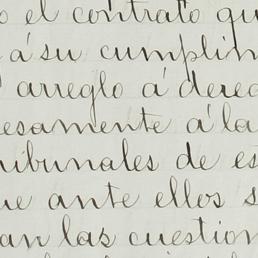 o el contrato qu
á su cumplim
arreglo á derec
esamente á la
ribunales de es
ue ante ellos s
an las cuestion